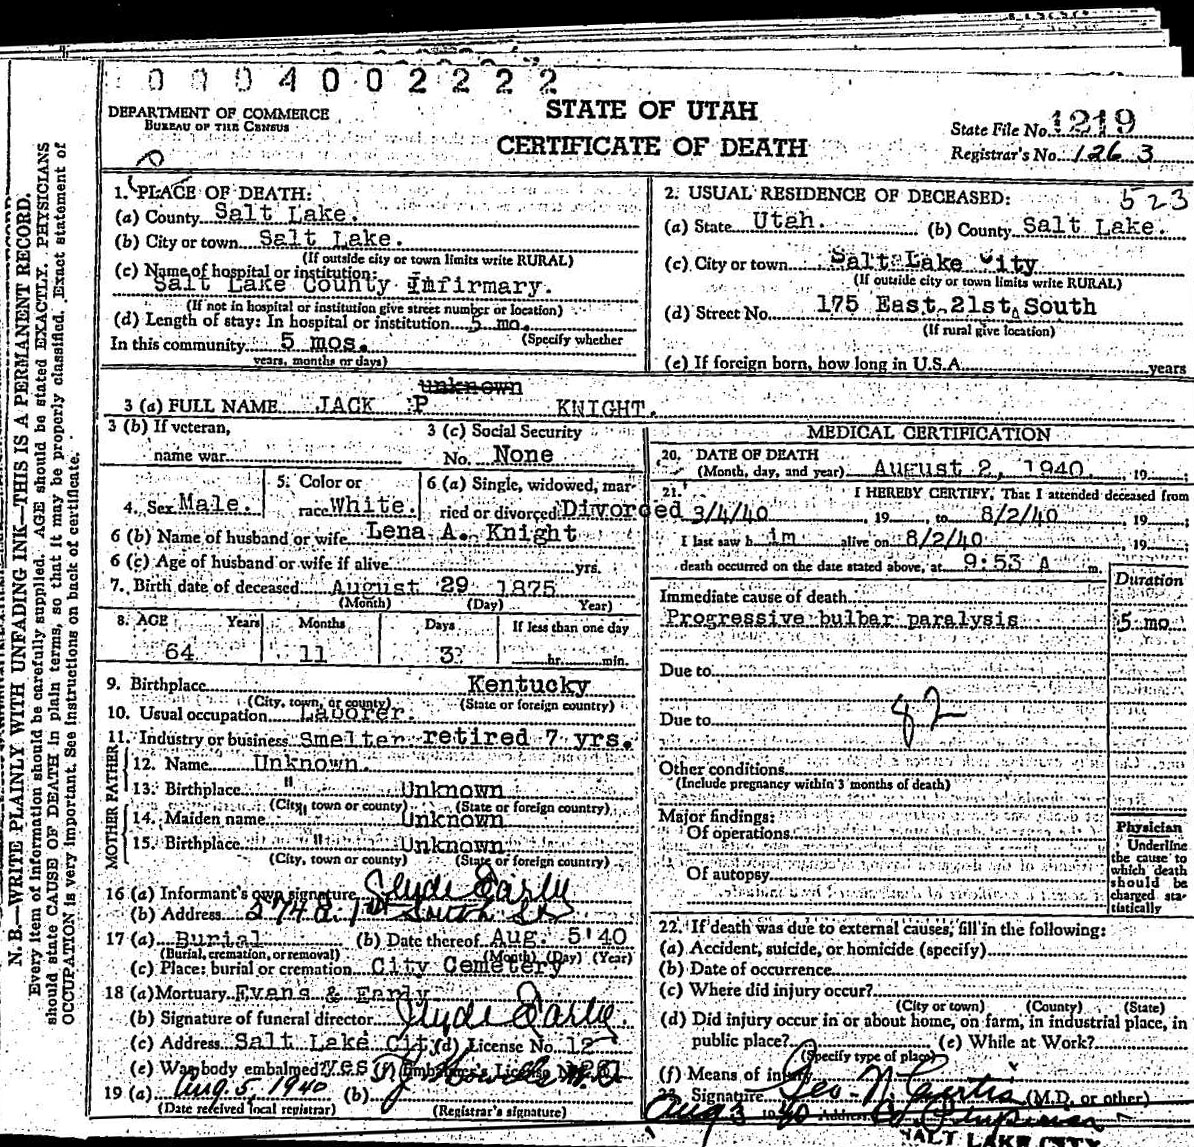 0 0 0 4 0 0 2 2 2 2
DEPARTMENT OF COMMERCE
BUREAU OF THE CENSUS
STATE OF UTAH
CERTIFICATE OF DEATH
State File No. 1219
Registrar's No. 1263
1. PLACE OF DEATH:
(a) County Salt Lake.
(b) City or town Salt Lake.
(If outside city or town limits write RURAL)
(c) Name of hospital or institution:
Salt Lake County Infirmary.
(If not in hospital or institution give street number or location)
(d) Length of stay: In hospital or institution 5 mo.
(Specify whether
In this community 5 mos.
years, months or days)
2. USUAL RESIDENCE OF DECEASED: 523
(a) State Utah. (b) County Salt Lake.
(c) City or town Salt Lake City
(If outside city or town limits write RURAL)
(d) Street No. 175 East 21st South
(If rural give location)
(e) If foreign born, how long in U.S.A. years
unknown
3 (a) FULL NAME JACK P KNIGHT.
3 (b) If veteran,
name war
3 (c) Social Security
No. None
4. Sex Male.
5. Color or
race White.
6 (a) Single, widowed, mar-
ried or divorced Divorced
6 (b) Name of husband or wife Lena A. Knight
6 (c) Age of husband or wife if alive yrs.
7. Birth date of deceased August 29 1875
(Month) (Day) Year)
8. AGE Years Months Days If less than one day
64 11 3 hr. min.
9. Birthplace Kentucky
(City, town, or county) (State or foreign country)
10. Usual occupation Laborer.
11. Industry or business Smelter retired 7 yrs.
FATHER
12. Name Unknown.
13. Birthplace " Unknown
(City, town or county) (State or foreign country)
MOTHER
14. Maiden name " Unknown
15. Birthplace " Unknown
(City, town or county) (State or foreign country)
16 (a) Informant's own signature Clyde Early
(b) Address 574 E. 1st South St
17 (a) Burial (b) Date thereof Aug. 5'40
(Burial, cremation, or removal) (Month) (Day) (Year)
(c) Place: burial or cremation City Cemetery
18 (a) Mortuary Evans & Early
(b) Signature of funeral director Clyde Early.
(c) Address Salt Lake City (d) License No. 12
(e) Was body embalmed? yes (f) Embalmer's License No.
19 (a) Aug 5, 1940 (b)
(Date received local registrar) (Registrar's signature)
MEDICAL CERTIFICATION
20. DATE OF DEATH
(Month, day, and year) August 2, 1940. , 19 ;
21. I HEREBY CERTIFY, That I attended deceased from
3/4/40 , 19 , to 8/2/40 , 19 ;
I last saw h im alive on 8/2/40 , 19 ;
death occurred on the date stated above, at 9:53 A m.
Duration
Immediate cause of death
Progressive bulbar paralysis 5 mo.
Due to
82
Due to
Other conditions
(Include pregnancy within 3 months of death)
Major findings:
Of operations
Of autopsy
Physician
Underline
the cause to
which death
should be
charged sta-
tistically
22. If death was due to external causes, fill in the following:
(a) Accident, suicide, or homicide (specify)
(b) Date of occurrence
(c) Where did injury occur?
(City or town) (County) (State)
(d) Did injury occur in or about home, on farm, in industrial place, in
public place? (e) While at Work?
(Specify type of place)
(f) Means of injury
23. Signature Geo. N. Curtis (M.D. or other)
Aug 3 1940 Address Co. Physician
SALT LAKE CITY
N. B.—WRITE PLAINLY WITH UNFADING INK—THIS IS A PERMANENT RECORD.
Every item of information should be carefully supplied. AGE should be stated EXACTLY. PHYSICIANS
should state CAUSE OF DEATH in plain terms, so that it may be properly classified. Exact statement of
OCCUPATION is very important. See instructions on back of certificate.